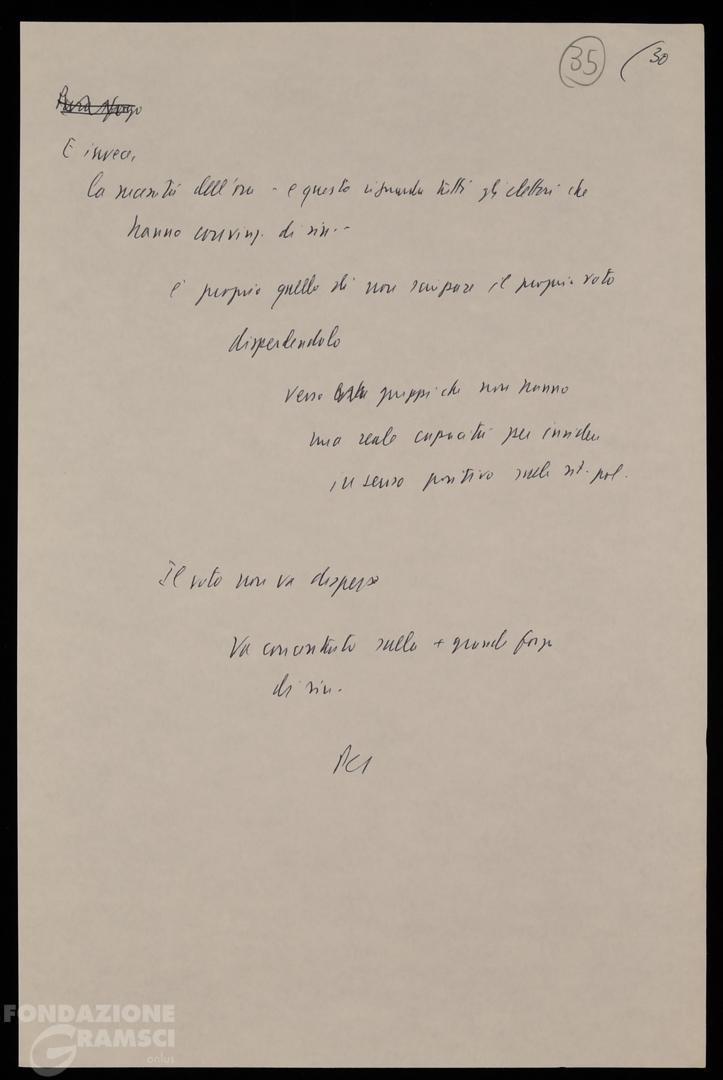 35 (30
E invece,
la necessità dell'ora - e questo riguarda tutti gli elettori che
hanno convinz. di sin. -
è proprio quella di non sciupare il proprio voto
disperdendolo
verso gruppi che non hanno
una reale capacità per incidere
in senso positivo sulla sit. pol.
Il voto non va disperso
Va concentrato sulla + grande forza
di sin.
PCI
FONDAZIONE
GRAMSCI
onlus